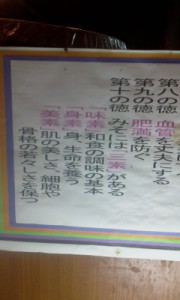 第八の徳 血管を丈夫にする
第九の徳 肥満を防ぐ
第十の徳 みそは「三素」がある
「味素」和食の調味の基本
「身素」身、生命を養う
「美素」肌の美しさ、細胞や
骨格の若々しさを保つ